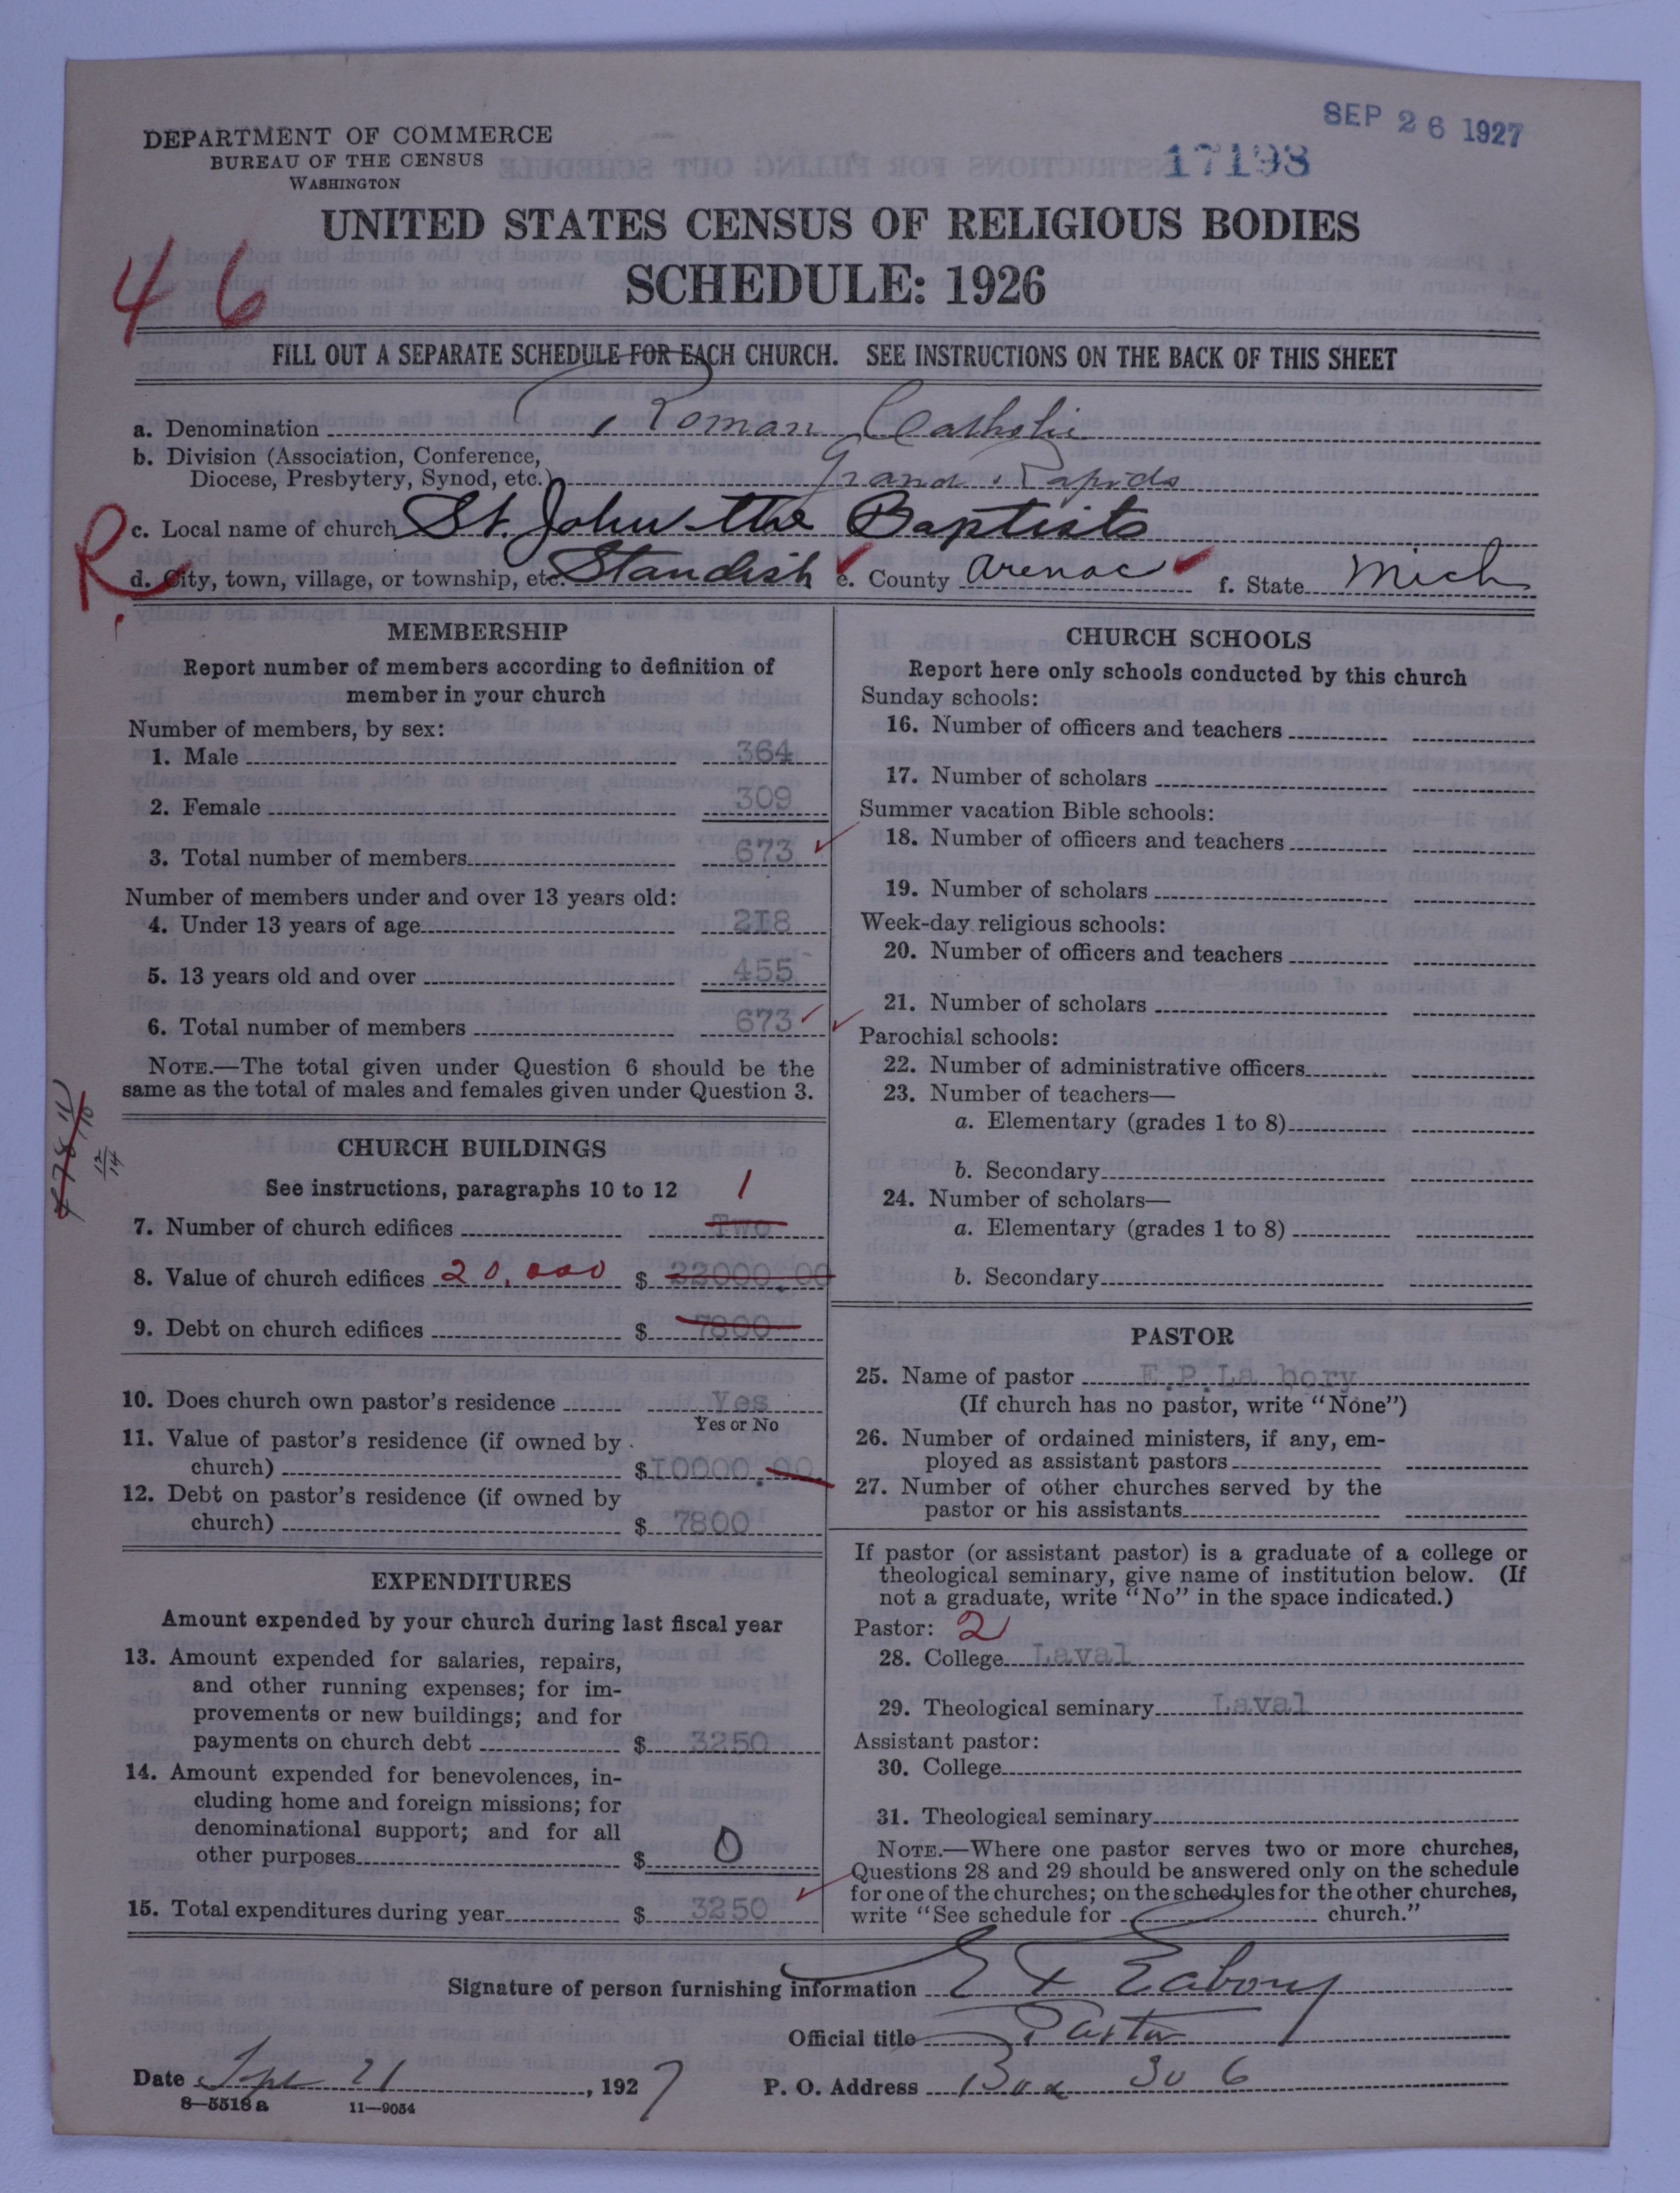 SEP 26 1927
17198
DEPARTMENT OF COMMERCE
BUREAU OF THE CENSUS
WASHINGTON
UNITED STATES CENSUS OF RELIGIOUS BODIES
SCHEDULE: 1926
46
FILL OUT A SEPARATE SCHEDULE FOR EACH CHURCH. SEE INSTRUCTIONS ON THE BACK OF THIS SHEET
a. Denomination Roman Catholic
b. Division (Association, Conference,
Diocese, Presbytery, Synod, etc.) Grand Rapids
R c. Local name of church St. John the Baptists
d. City, town, village, or township, etc. Standish e. County Arenac f. State Mich
MEMBERSHIP
Report number of members according to definition of
member in your church
Number of members, by sex:
1. Male 364
2. Female 309
3. Total number of members 673
Number of members under and over 13 years old:
4. Under 13 years of age 218
5. 13 years old and over 455
6. Total number of members 673
NOTE.—The total given under Question 6 should be the
same as the total of males and females given under Question 3.
CHURCH BUILDINGS
See instructions, paragraphs 10 to 12 1
7. Number of church edifices Two
8. Value of church edifices 20,000 $ 22000.00
9. Debt on church edifices $ 7800
10. Does church own pastor's residence Yes
Yes or No
11. Value of pastor's residence (if owned by
church) $ 10000.00
12. Debt on pastor's residence (if owned by
church) $ 7800
EXPENDITURES
Amount expended by your church during last fiscal year
13. Amount expended for salaries, repairs,
and other running expenses; for im-
provements or new buildings; and for
payments on church debt $ 3250
14. Amount expended for benevolences, in-
cluding home and foreign missions; for
denominational support; and for all
other purposes $ 0
15. Total expenditures during year $ 3250
CHURCH SCHOOLS
Report here only schools conducted by this church
Sunday schools:
16. Number of officers and teachers
17. Number of scholars
Summer vacation Bible schools:
18. Number of officers and teachers
19. Number of scholars
Week-day religious schools:
20. Number of officers and teachers
21. Number of scholars
Parochial schools:
22. Number of administrative officers
23. Number of teachers—
a. Elementary (grades 1 to 8)
b. Secondary
24. Number of scholars—
a. Elementary (grades 1 to 8)
b. Secondary
PASTOR
25. Name of pastor E.P.La bory
(If church has no pastor, write "None")
26. Number of ordained ministers, if any, em-
ployed as assistant pastors
27. Number of other churches served by the
pastor or his assistants
If pastor (or assistant pastor) is a graduate of a college or
theological seminary, give name of institution below. (If
not a graduate, write "No" in the space indicated.)
Pastor: 2
28. College Laval
29. Theological seminary Laval
Assistant pastor:
30. College
31. Theological seminary
NOTE.—Where one pastor serves two or more churches,
Questions 28 and 29 should be answered only on the schedule
for one of the churches; on the schedules for the other churches,
write "See schedule for church."
Signature of person furnishing information E P Labory
Official title Pastor
Date Sept 21, 1927 P. O. Address Box 306
8—5518a 11—9054